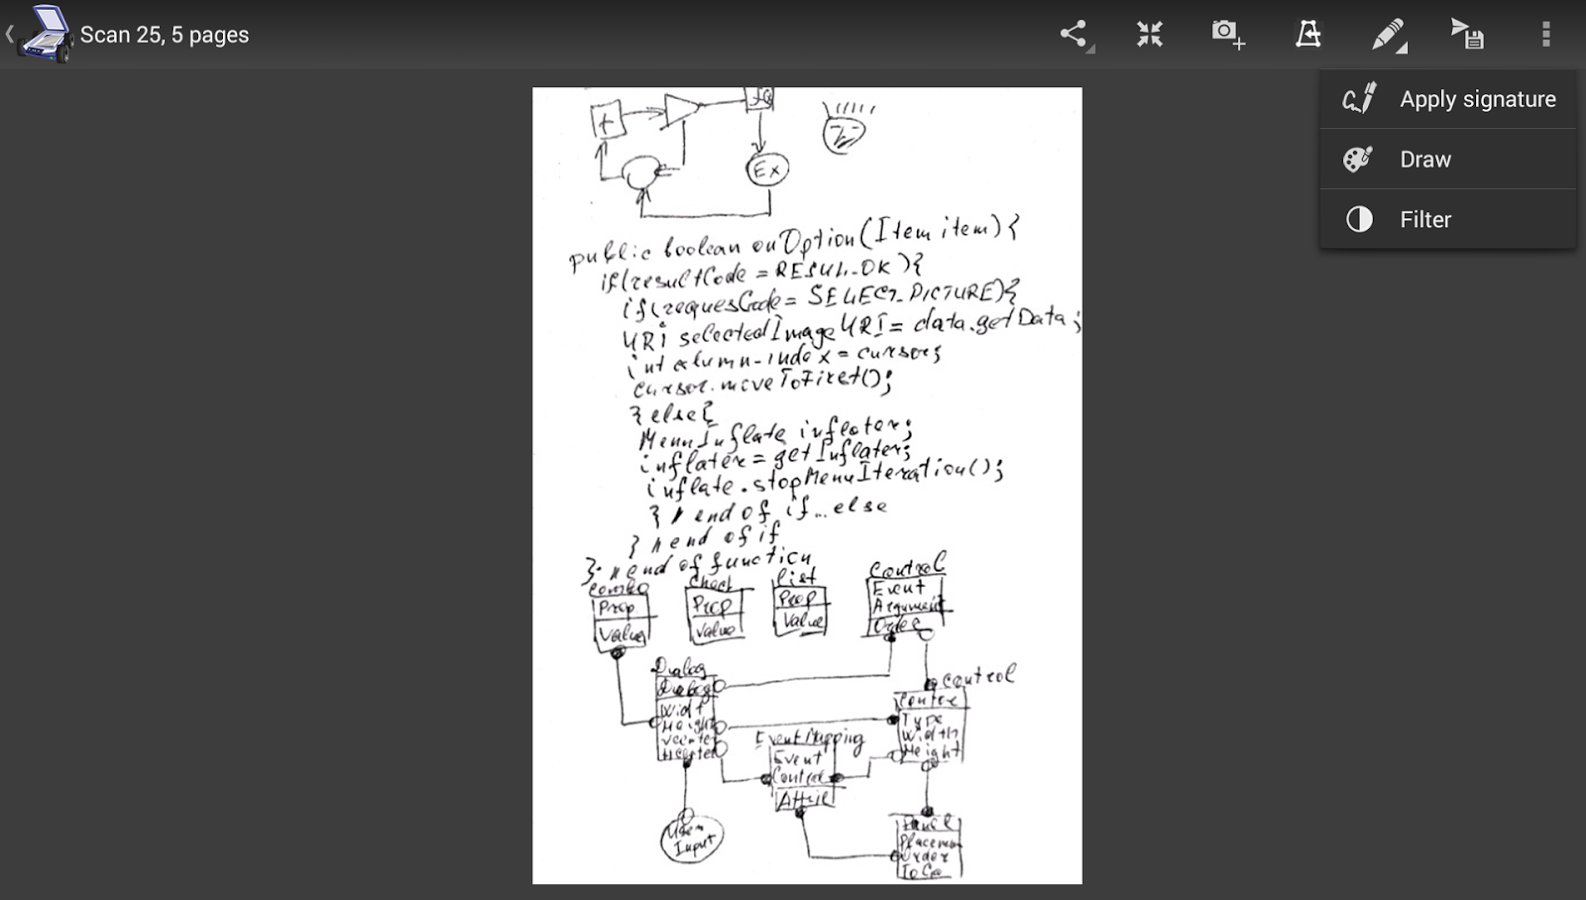 Scan 25, 5 pages
Apply signature
Draw
Filter
+
Ex
public boolean onOption(Item item){
if(resultCode = RESUL_OK){
if(requesCode = SELECT_PICTURE){
URi selectedImageURI = data.getData;
int column-index = cursor;
cursor.moveToFirst();
} else{
MenuInflate inflater;
inflater = getInflater;
inflate.stopMenuIteration();
} // end of if...else
} // end of if
}; // end of function
Combo
Prop
Value
Check
Prop
Value
List
Prop
Value
Control
Event
Argument
Order
Dialog
Dialog
Widt
Height
Vcenter
Hcenter
User
Input
EventMapping
Event
Control
Attrib
Control
Control
Type
Width
Height
Panel
Placemen
Order